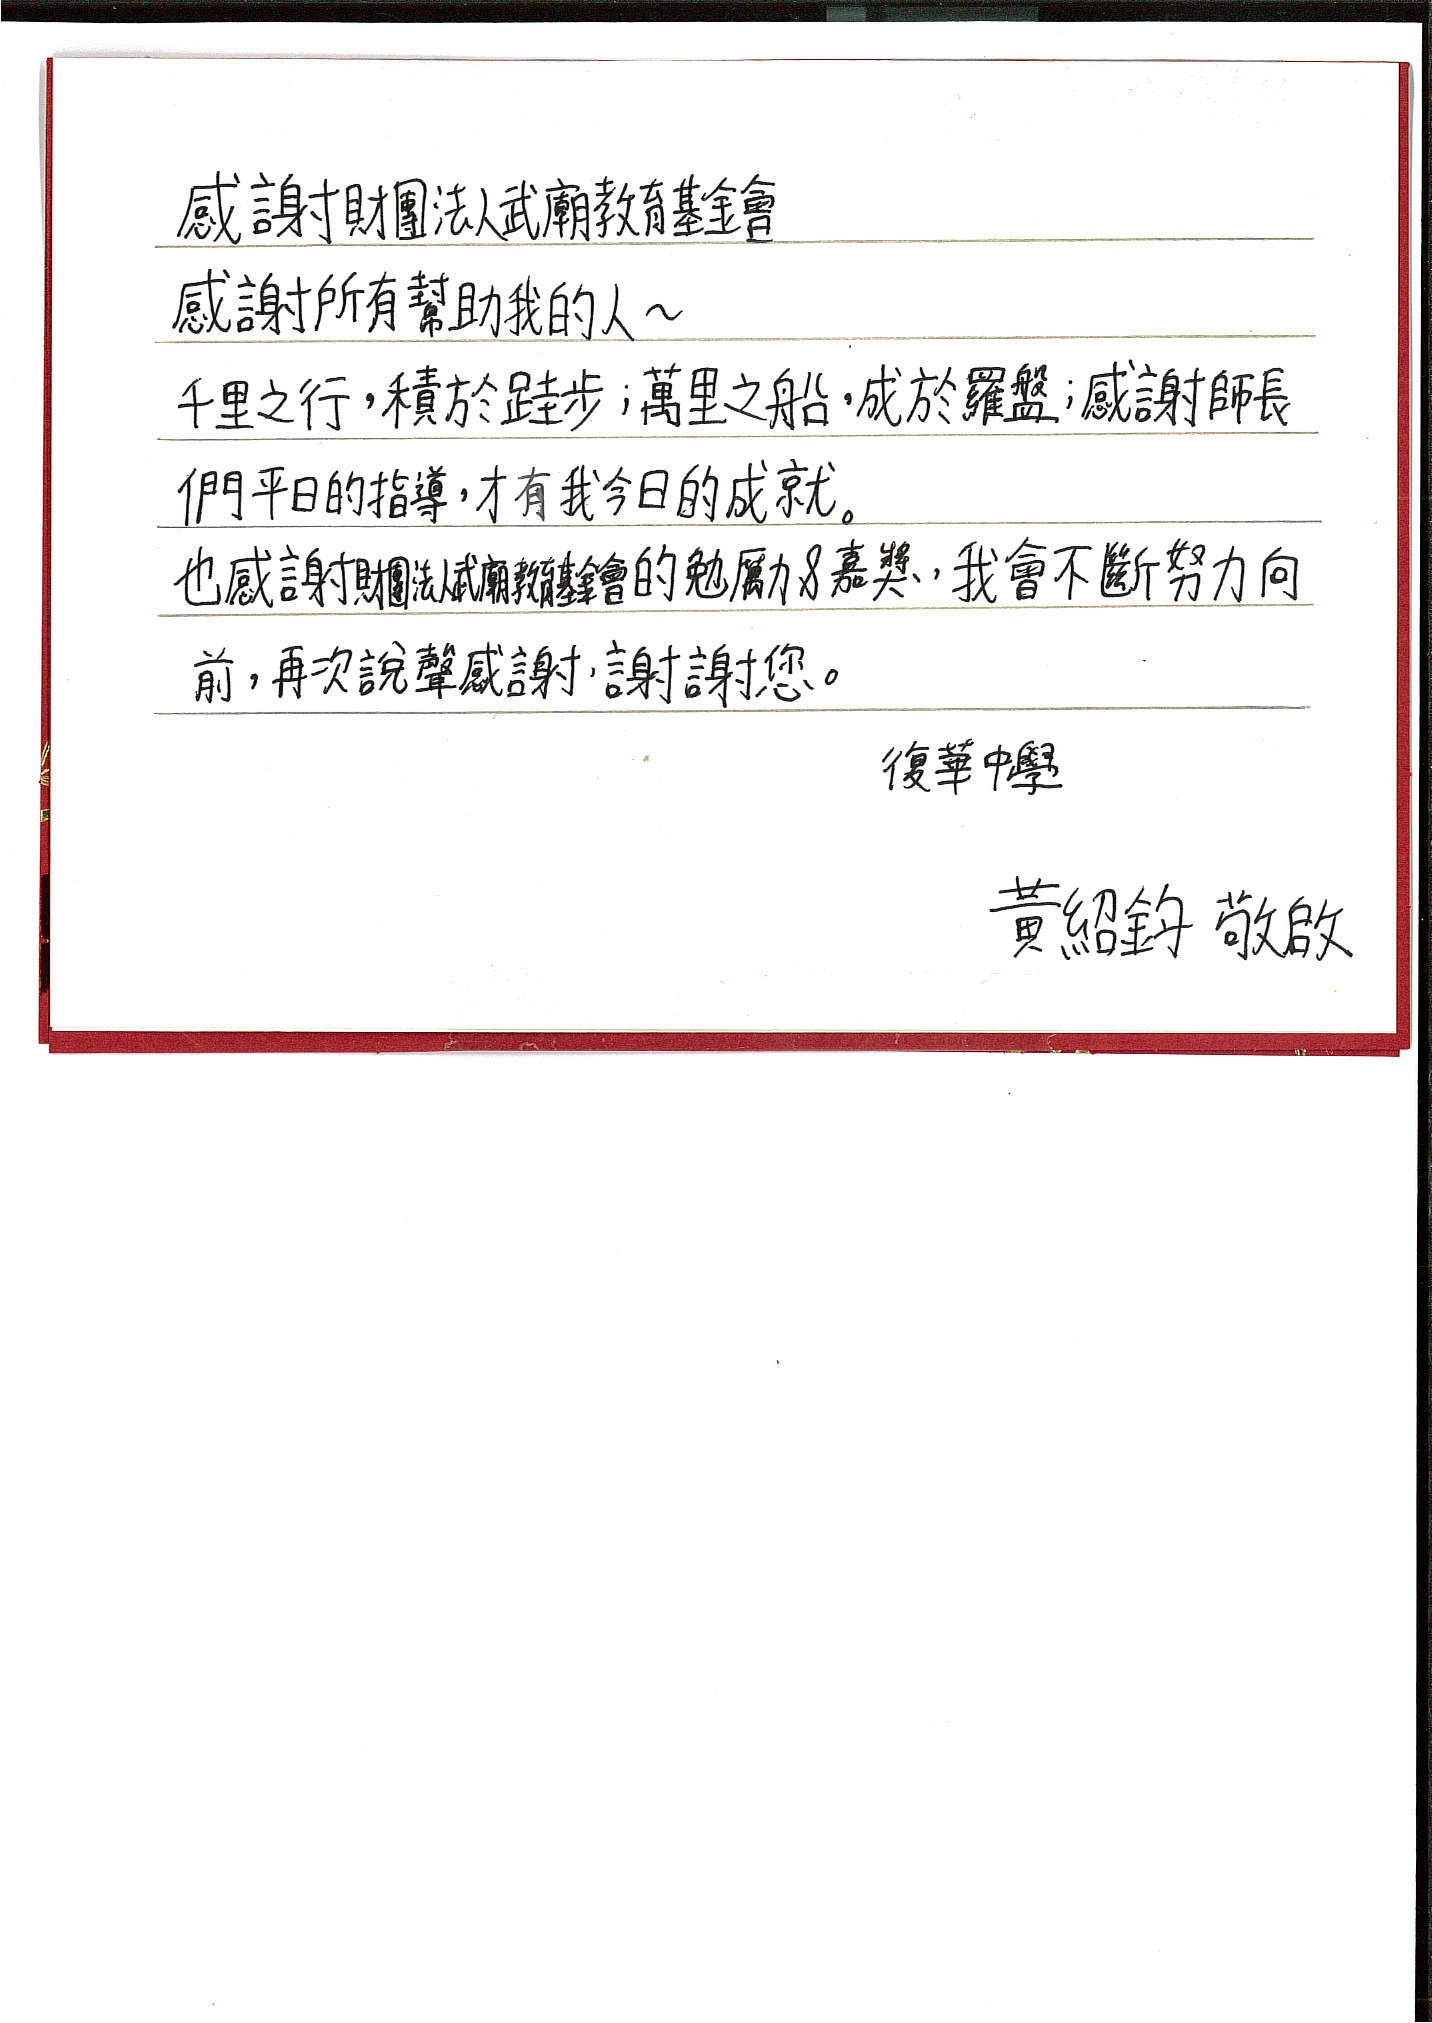 感謝財團法人武廟教育基金會
感謝所有幫助我的人～
千里之行，積於跬步；萬里之船，成於羅盤；感謝師長
們平日的指導，才有我今日的成就。
也感謝財團法人武廟教育基金會的勉勵&嘉獎，我會不斷努力向
前，再次說聲感謝，謝謝您。
復華中學
黃紹鈞 敬啟